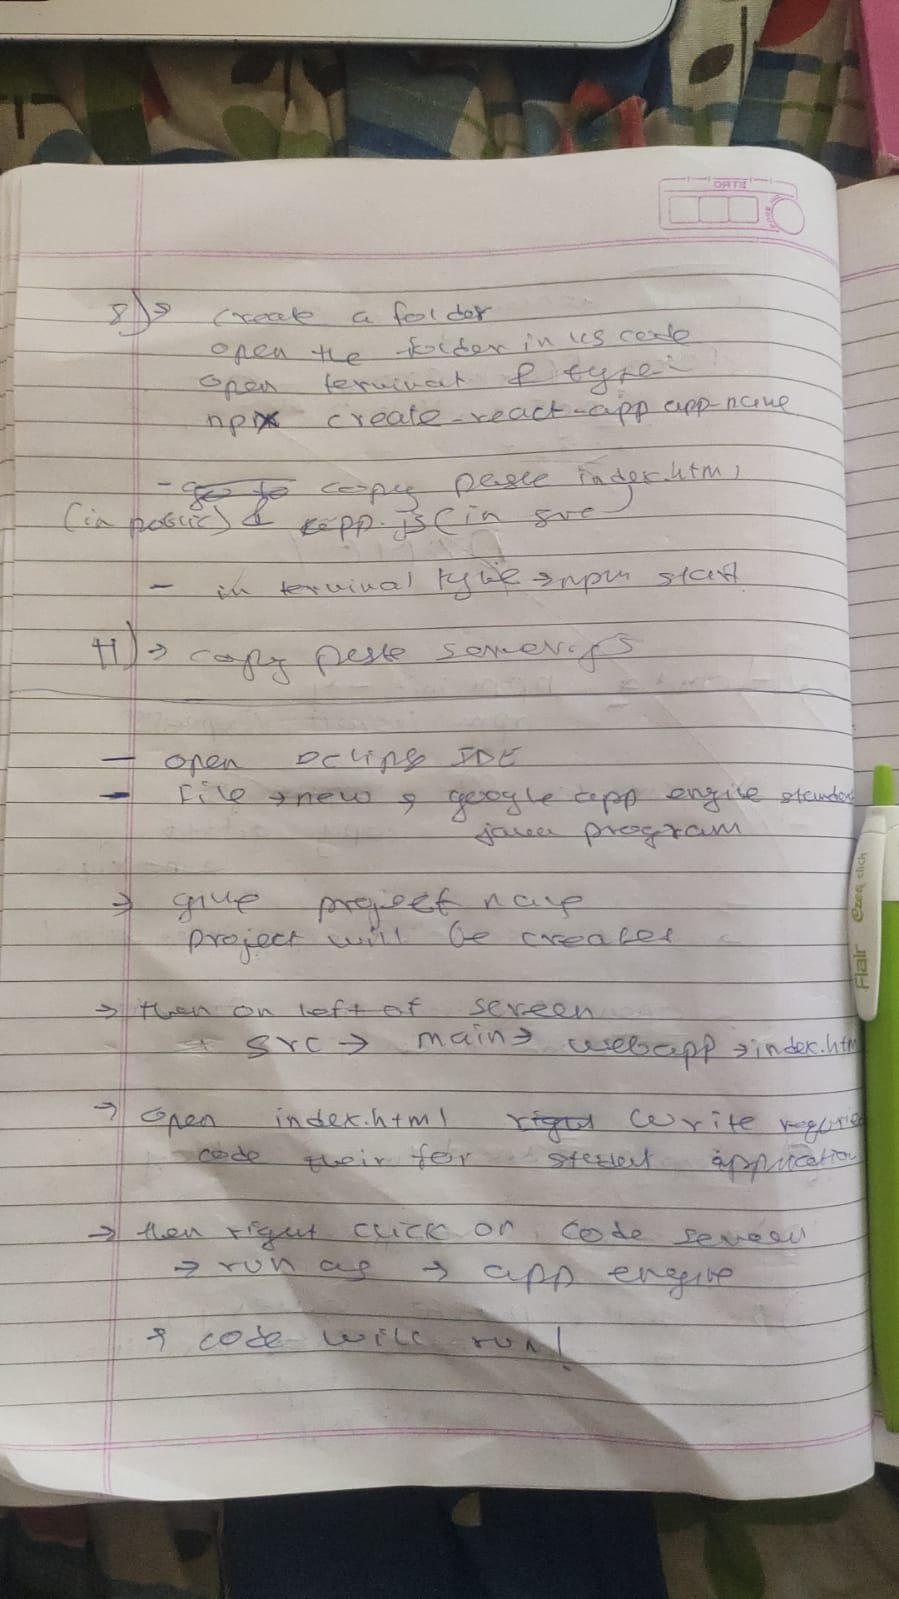 DATE
8) → create a folder
open the folder in vs code
open terminal & type:
npx create-react-app app-name
- go to copy paste index.html
(in public) & app.js (in src
- in terminal type → npm start
11) → copy paste server.js
- open Eclips IDE
- File → new → google app engine standar
java program
→ give project name
project will be created
→ then on left of screen
src → main → webapp → index.htm
→ open index.html right write require
code their for student application
→ then right click on code screen
→ run as → app engine
→ code will run!
Flair Ezee click